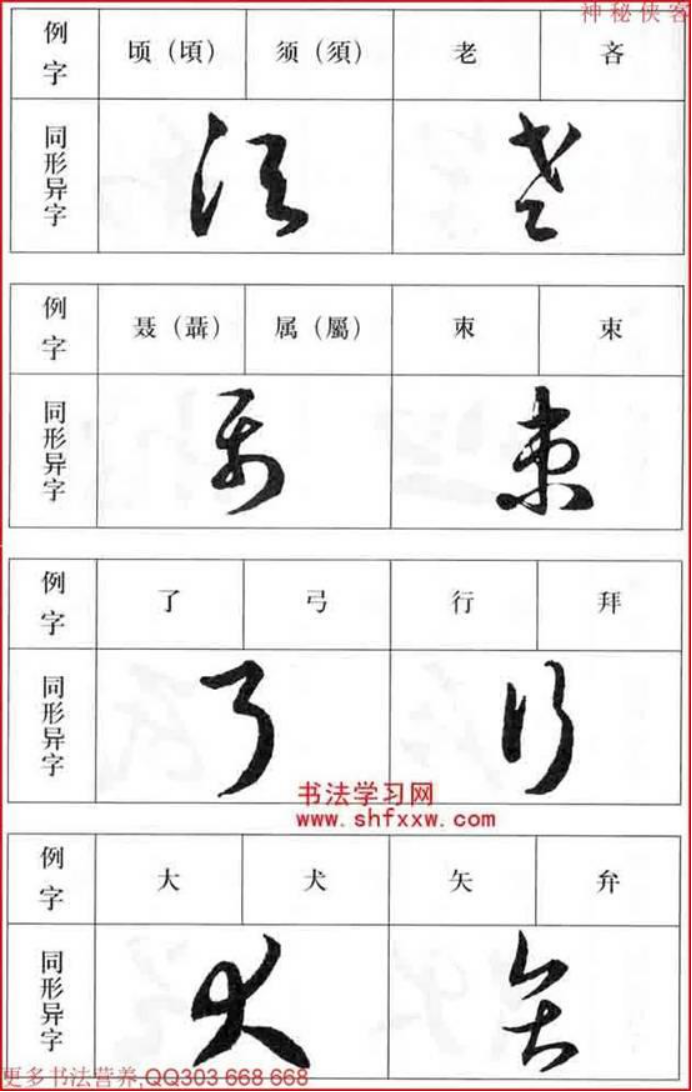 神秘侠客
例字 顷（頃） 须（須） 老 吝
同形异字
例字 聂（聶） 属（屬） 朿 束
同形异字
例字 了 弓 行 拜
同形异字
书法学习网
www.shfxxw.com
例字 大 犬 矢 弁
同形异字
更多书法营养,QQ303 668 668